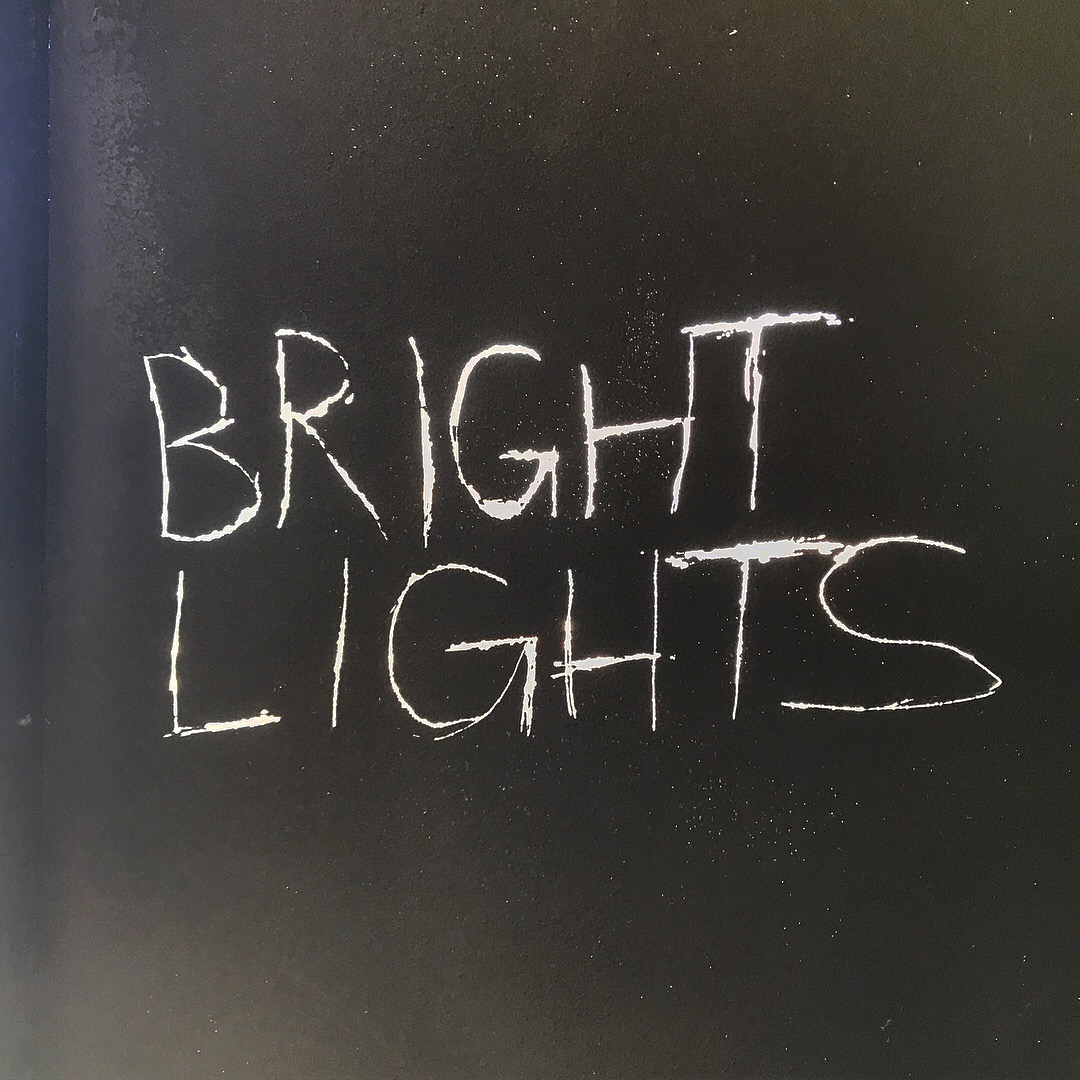 BRIGHT
LIGHTS